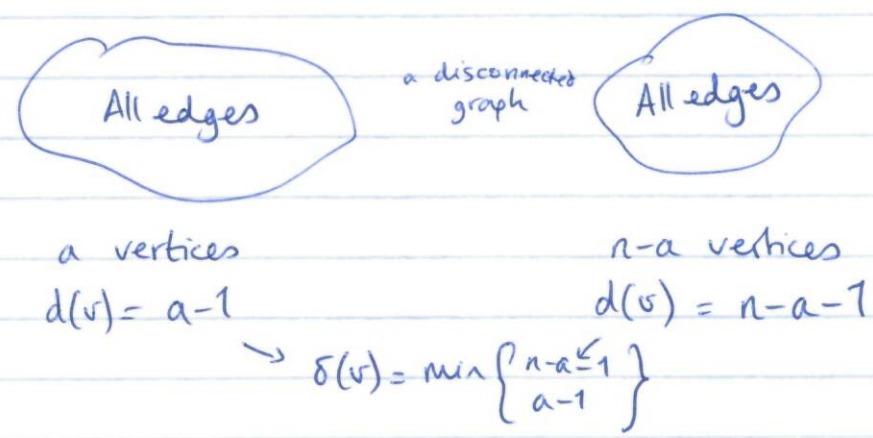 All edges
a disconnected
graph
All edges
a vertices
n-a vertices
d(v) = a-1
d(v) = n-a-1
→ δ(v) = min { n-a-1
a-1 }